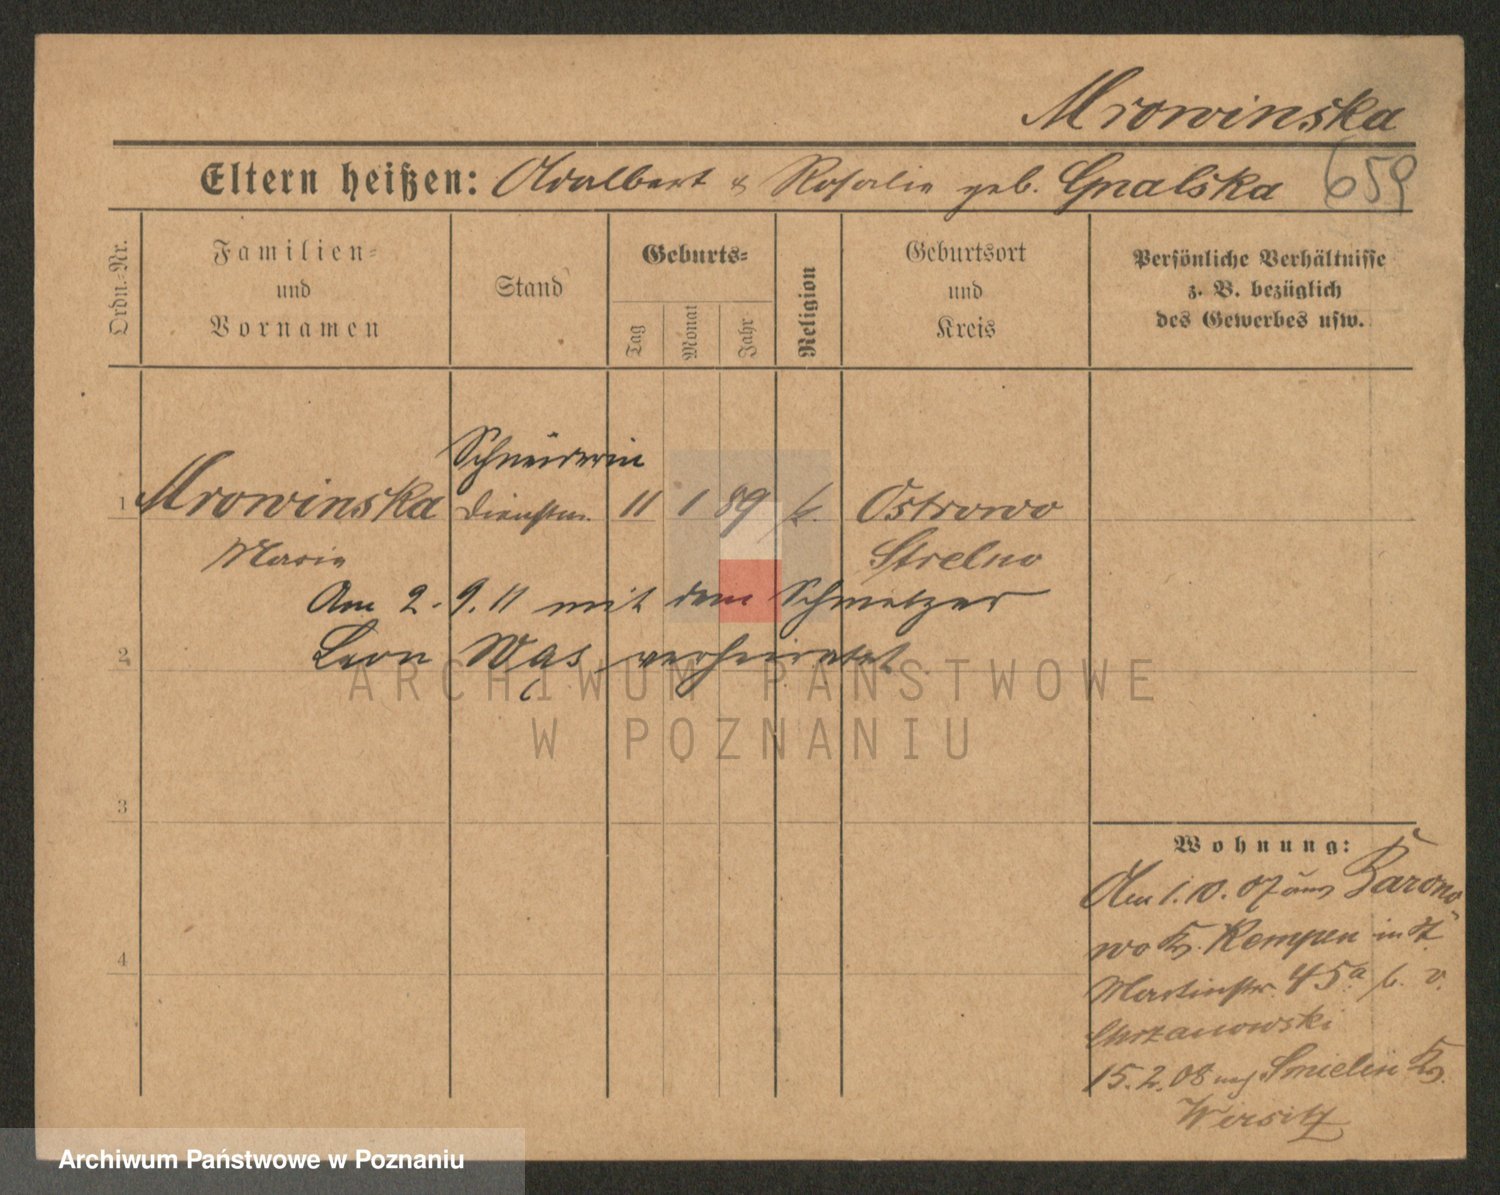 Mrowinska
659
Eltern heißen: Adalbert & Rosalie geb. Gnalska
Ordn.-Nr.
Familien- und Vornamen
Stand
Geburts-
Tag
Monat
Jahr
Religion
Geburtsort und Kreis
Persönliche Verhältnisse
z. B. bezüglich
des Gewerbes usw.
Schneiderin
1 Mrowinska Dienstm. 11 1 89 k. Ostrowo
Marie Strelno
Am 2.9.11 mit dem
2 Leon Wąs verheiratet
ARCHIWUM PAŃSTWOWE
W POZNANIU
3
Wohnung:
Am 1.10.07 aus Barono
wo Kr. Kempen in
4
Martinstr. 45a b. v.
Chrzanowski
15.2.08 nach Smielin Kr.
Wirsitz
Archiwum Państwowe w Poznaniu